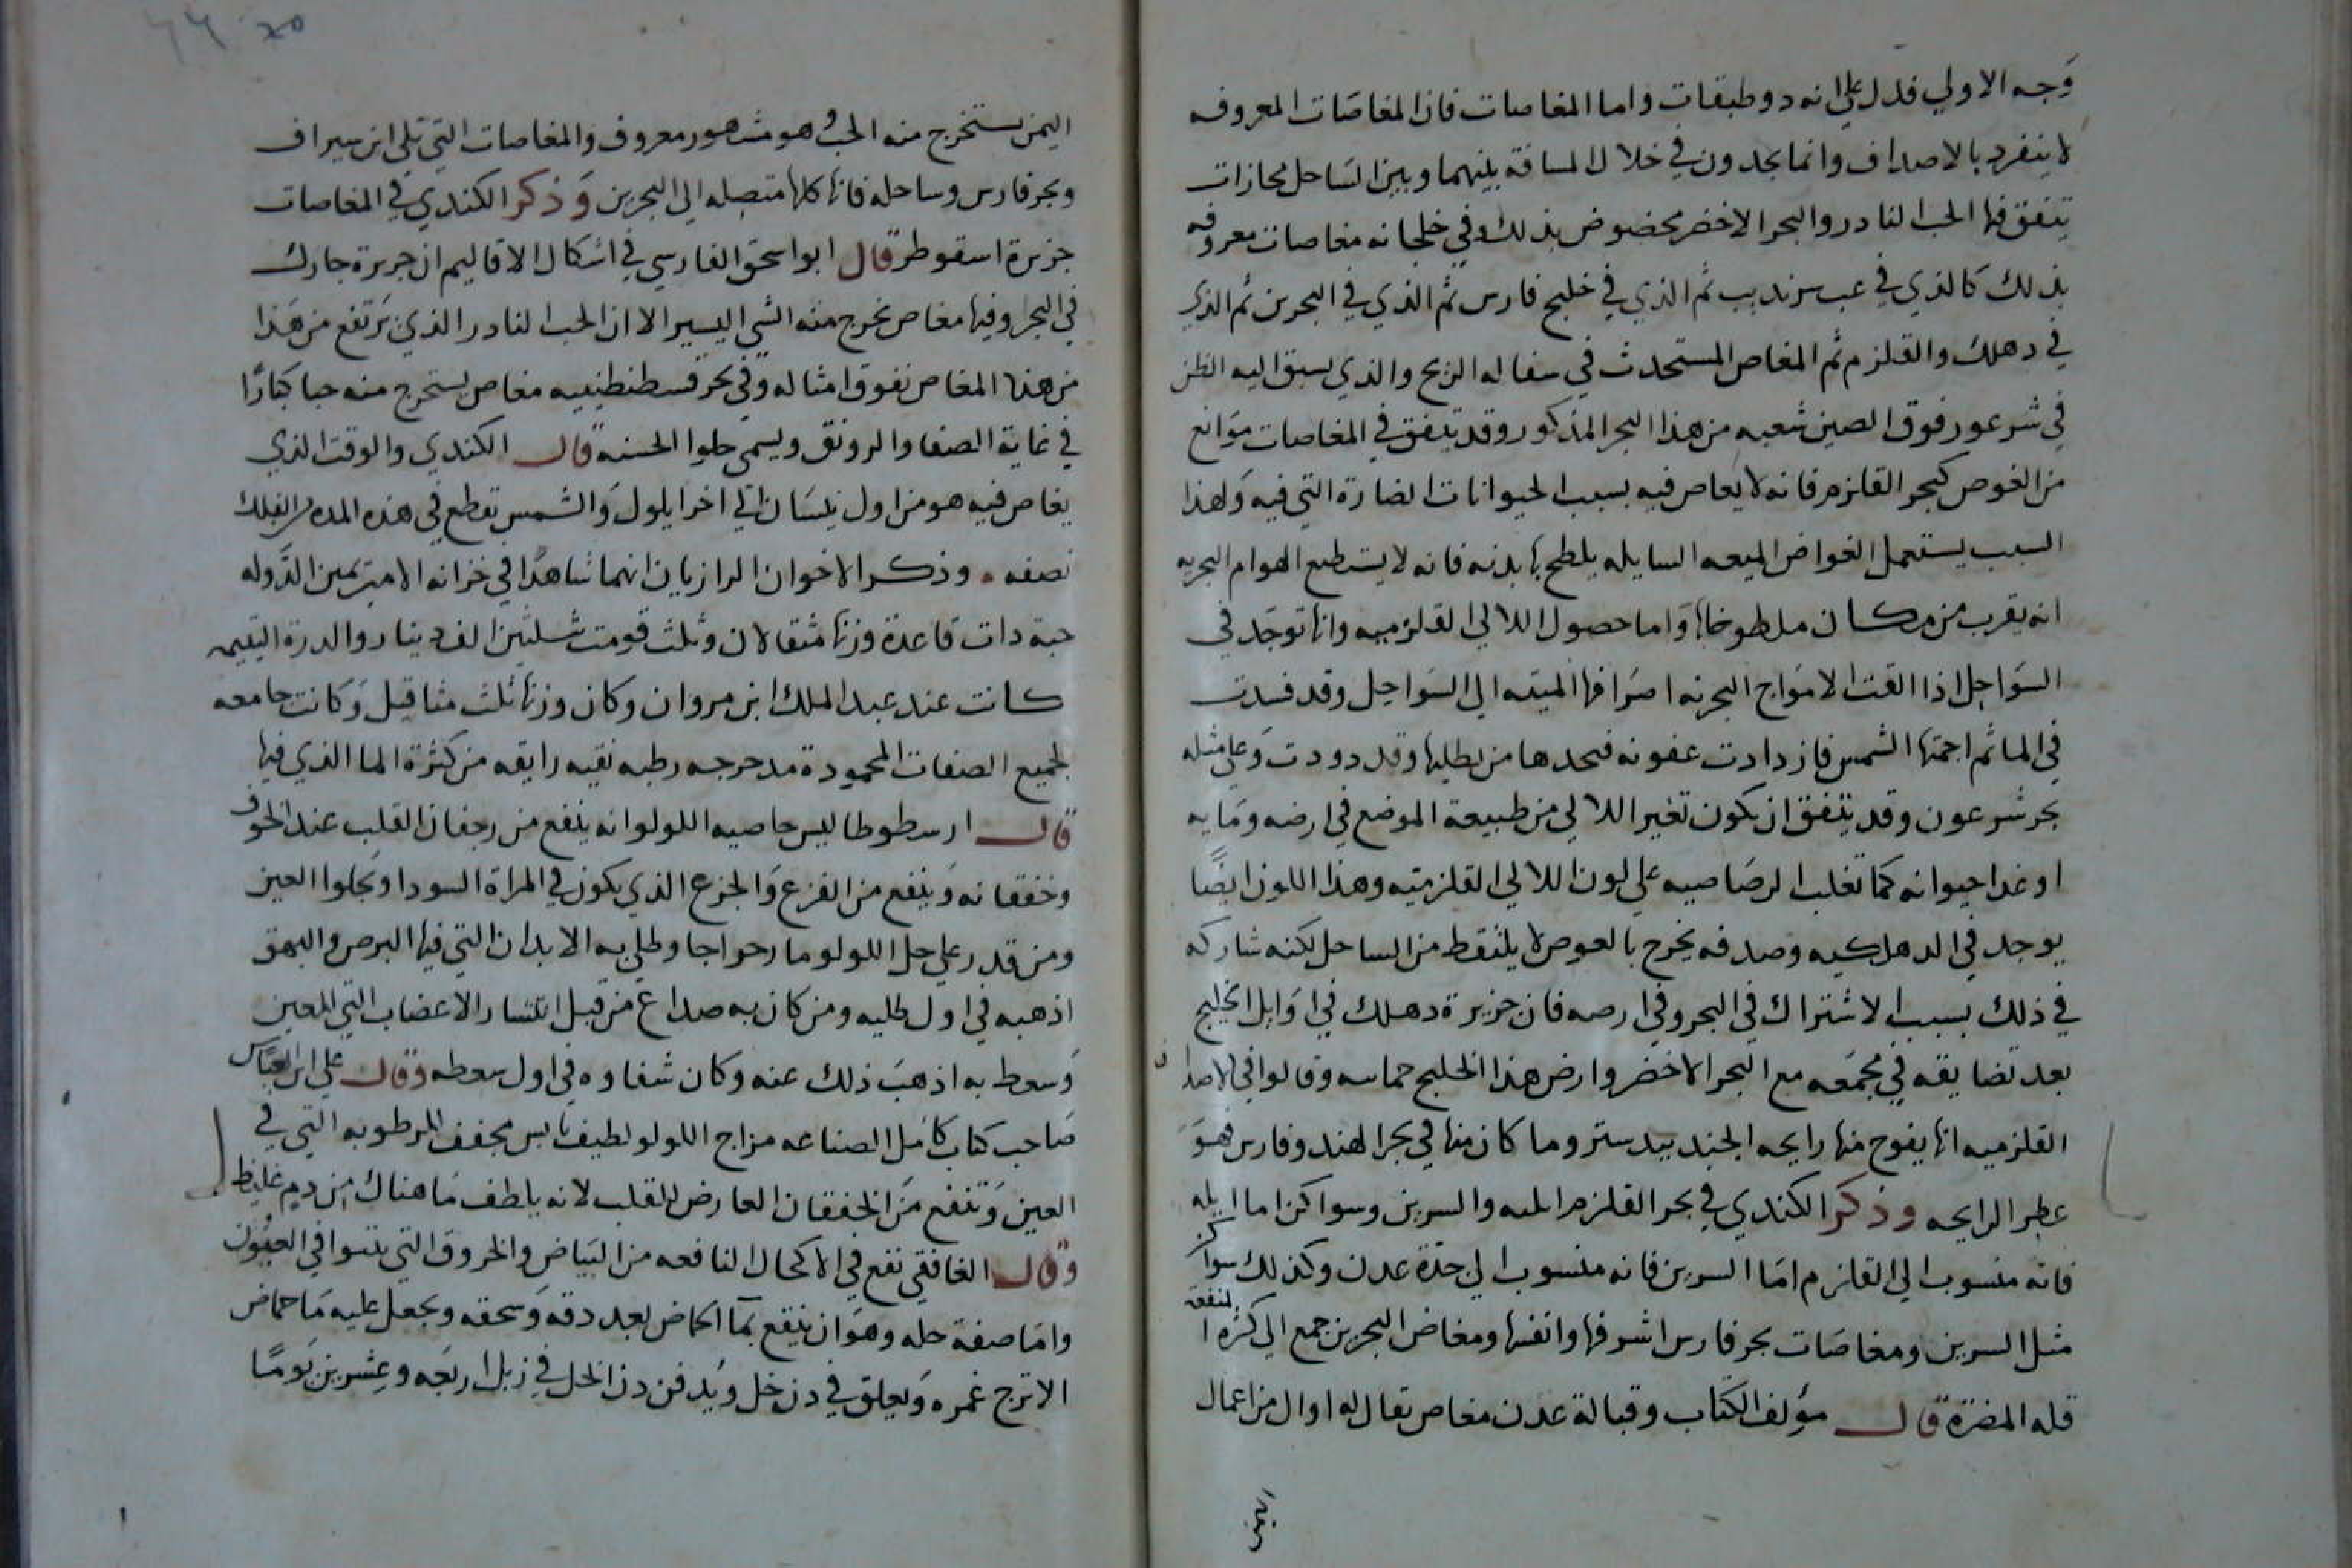 وَجه الاولي فدل علي انه دو طبقات واما المغاصات فان المغاصَات المعروفه
لا ينفرد بالاصداف وانما يجدون في خلال المسافة بينهما وبين السَاحل مجازات
يتفق فيها الحب النادر والبحر الاخضر مخصوص بذلك وفي خلجانه مغاصات معروفه
بذلك كالذي في عب سرنديب ثم الذي في خليج فارس ثم الذي في البحرين ثم الذي
في دهلك والقلزم ثم المغاص المستحدث في سفاله الزنج والذي يسبق اليه الظن
في شرعور فوق الصين شعبه من هذا البحر المذكور وقد يتفق في المغاصات موَانع
من الغوص كبحر القلزم فانه لا يغاص فيه بسبب الحيوانات الضارة التي فيه وَلهذا
السبب يستعمل الغواص الميعه السايله يلطح بها بدنه فانه لا يستطيع الهوام البحريه
انه يقرب من مكان ملطوخا بها وَاما حصول اللالي القلزميه وانها توجَد في
السوَاحِل اذا القت الامواج البحريه اصدَافها الميته الي السوَاحِل وقد فسدت
في الما ثم احمتها الشمس فازدادت عفونه فيجدها من يطلبها وقد دودت وَعلي مثله
بحر شرعون وقد يتفق ان يكون تغير اللالي من طبيعة الموضع في ارضه ومَايه
او غدا حيوانه كما تغلب الرصَاصيه علي لون اللالي القلزميه وهذا اللون ايضًا
يوجد في الدهلكيه وصدفه يخرج بالغوص لا يلتقط من الساحل لكنه شاركه
في ذلك بسبب الاشتراك في البحر وفي ارضه فان جزيرة دهلك في اوَايل الخليج
بعد تضايقه في مجمَعه مع البحر الاخضر وارض هذا الخليج حماسه وقالوا في الاصداف
القلزميه انها يفوح منها رايحه الجندبيدستر وما كان منها في بحر الهند وفارس فهوَ
عطر الرايحه وذكر الكندي في بحر القلزم ايله والسرين وسواكن اما ايله
فانه منسوب الي القلزم امَا السرين فانه منسوب الي جدَة عدن وكذلك سواكن
مثل السرين ومغاصَات بحر فارس اشرفها وانفسها ومغاص البحرين جمع الي كثرة المنفعه
قله المضرة قال مؤلف الكتاب وقبالة عدن مغاص يقال له اوال من اعمال
اليمن
اليمن يستخرج منه الحب وهو مشهور معروف والمغاصات التي تلي ابن سيراف
وبحر فارس وساحله فانها كلها متصله الي البحرين وَذكر الكندي في المغاصات
جزيرة اسقوطر قال ابو اسحق الفارسي في اشكال الاقاليم ان جزيرة جارك
في البحر وفيها مغاص يخرج منه الشي اليسير الا ان الحب النادر الذي يَرتفع من هَذا
من هذا المغاص تفوق امثاله وفي بحر قسطنطينيه مغاص يستخرج منه حبا كبارًا
في غاية الصفا والرونق ويسمي حلوا الحسنه قال الكندي والوقت الذي
يغاص فيه هو من اول نيسَان الي اخر ايلول وَالشمس تقطع في هذه المده من الفلك
نصفه ۰ وذكر الاخوان الرازيان انهما شاهدَا في خزانه الامير يَمين الدَوله
حبة دات قاعدة وزنها مثقالان وثلث قومت بثلثين الف دينار والدرة اليتيمه
كانت عند عبد الملك ابن مروان وكان وزنها ثلث مثاقيل وَكانت جامعه
لجميع الصفات المحمودة مدحرجه رطبه نقيه رايقه من كثرة الما الذي فيها
قال ارسطوطاليس خاصيه اللولو انه ينفع من رجفان القلب عند الخوف
وخفقانه وَينفع من الفزع وَالجزع الذي يكون في المراة السودا وَيجلوا العين
ومن قدر علي حل اللولو ما رحواجا وطلي به الابدان التي فيها البرص والبهق
اذهبه في اول طليه ومن كان به صداع من قبل انتشار الاعضاب التي للعين
وَسعط به اذهبَ ذلك عنه وكان شفاوه في اول سعطه وقال علي ابن العبَاس
صَاحب كتاب كامَل الصناعه مزاج اللولو لطيف يابس مجفف للرطوبه التي في
العين وَتنفع منَ الخفقان العارض للقلب لانه يلطف مَا هناك من دم غليظ
وقال الغافقي نفع في الاكحال النافعه من البَياض والخروق التي ينتوا في العيُون
وامَا صفة حله وهوَ ان ينقع بمَا الحاض بعد دقه وَسحقه ويجعل عليه مَا حماض
الاترج غمره وَيعلق في دن خل ويُدفن دن الخل في زبل اربعَه وعِشرين يَومًا